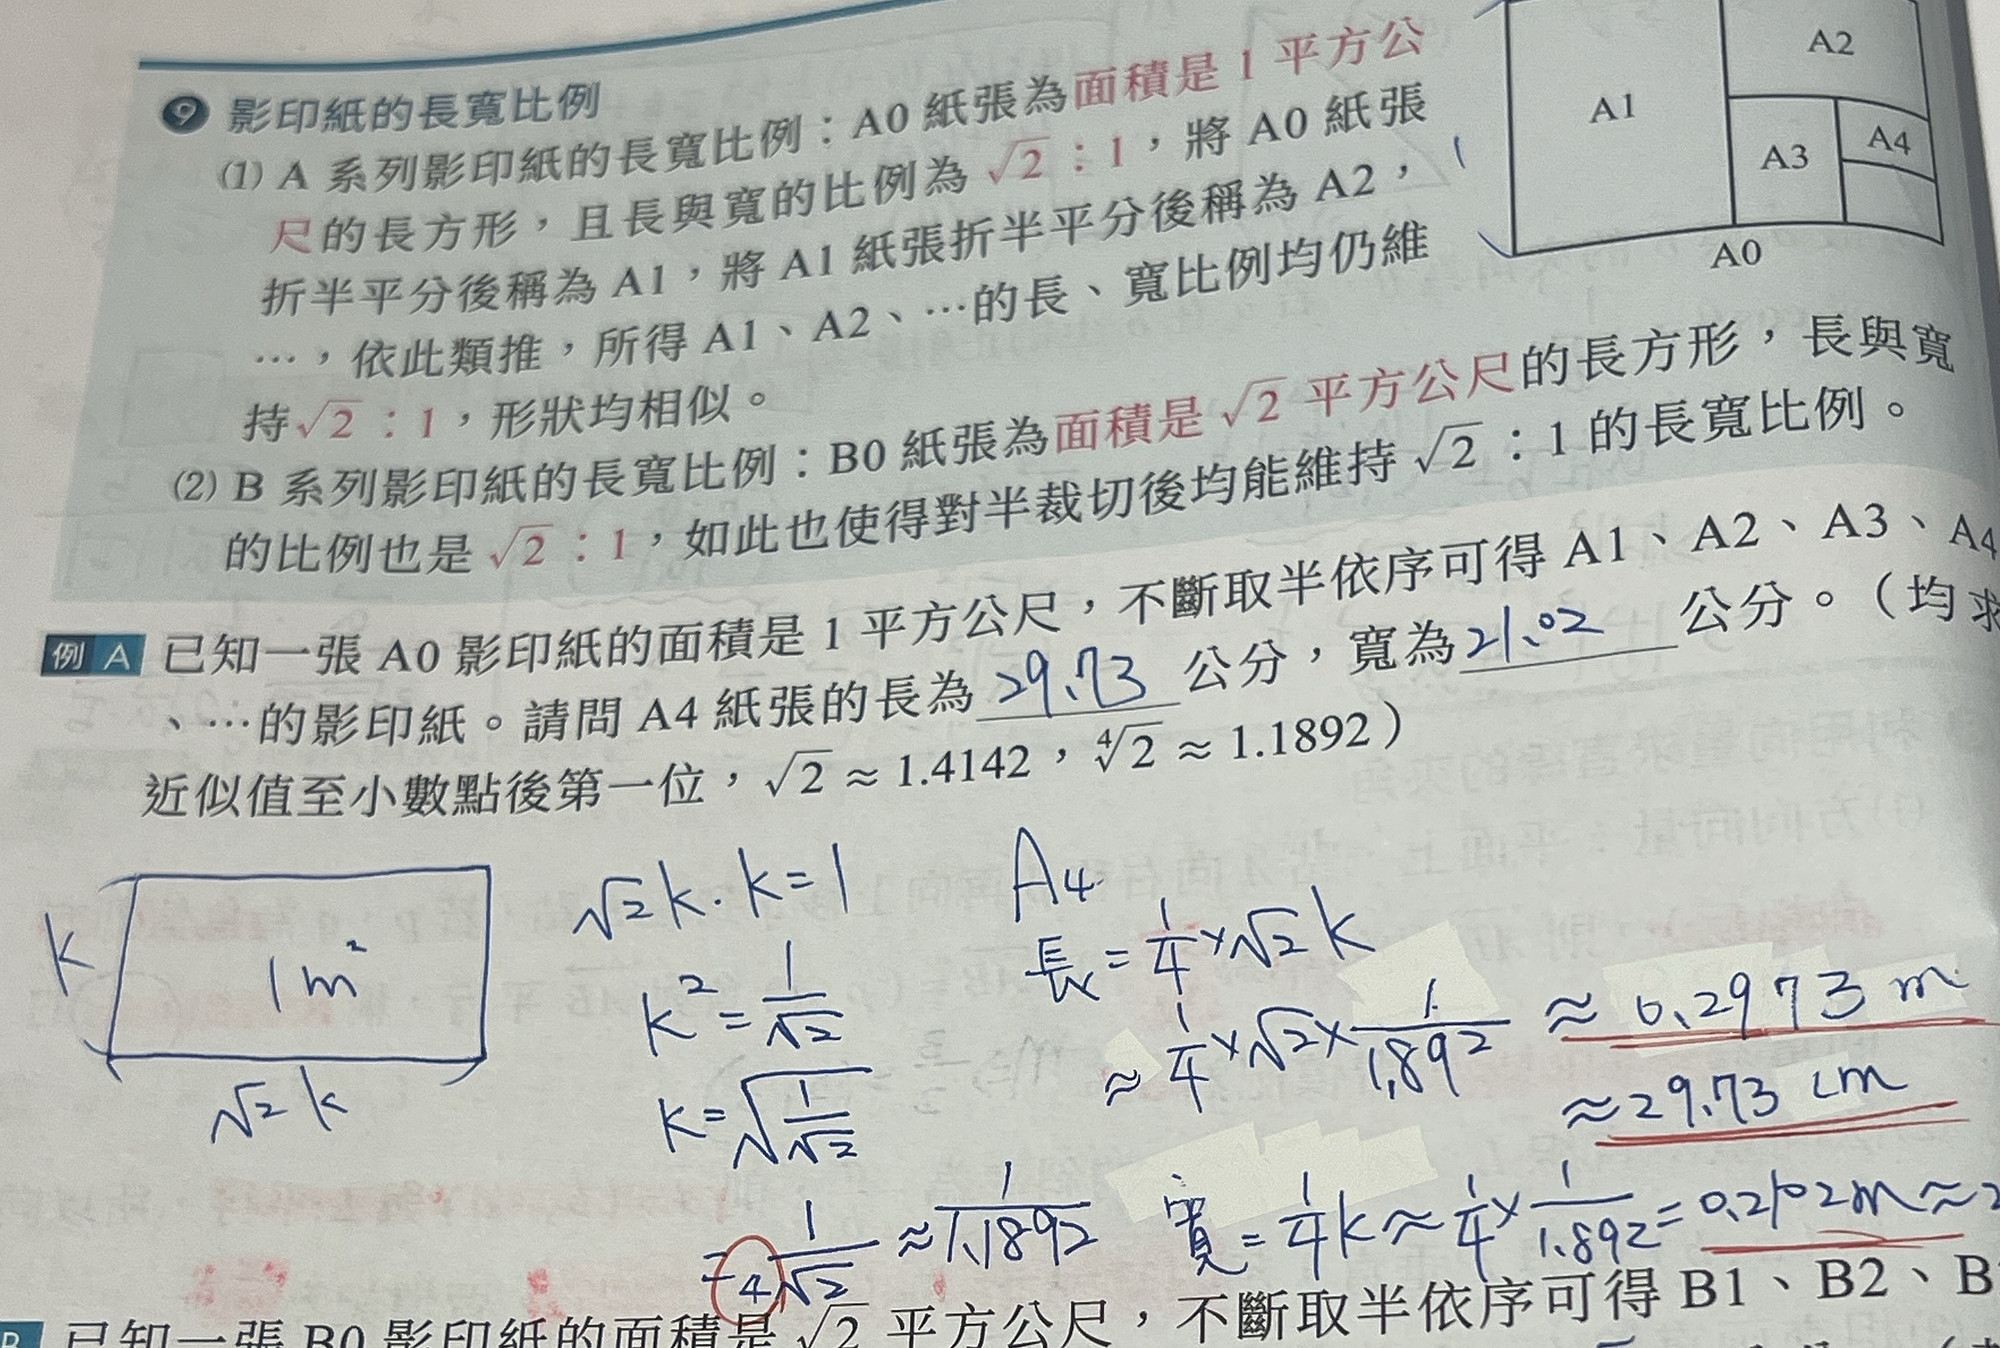 ❾ 影印紙的長寬比例
⑴ A 系列影印紙的長寬比例：A0 紙張為面積是 1 平方公
尺的長方形，且長與寬的比例為 √2：1，將 A0 紙張
折半平分後稱為 A1，將 A1 紙張折半平分後稱為 A2，
…，依此類推，所得 A1、A2、…的長、寬比例均仍維
持√2：1，形狀均相似。
⑵ B 系列影印紙的長寬比例：B0 紙張為面積是 √2 平方公尺的長方形，長與寬
的比例也是 √2：1，如此也使得對半裁切後均能維持 √2：1 的長寬比例。
A1
A2
A3
A4
A0
1
例 A 已知一張 A0 影印紙的面積是 1 平方公尺，不斷取半依序可得 A1、A2、A3、A4
、…的影印紙。請問 A4 紙張的長為 29.73 公分，寬為 21.02 公分。（均求
近似值至小數點後第一位，√2 ≈ 1.4142，∜2 ≈ 1.1892）
k
1 m²
√2 k
√2 k · k = 1
k² = 1/√2
k = √(1/√2)
= 1/∜2 ≈ 1/1.1892
A4
長 = 1/4 × √2 k
≈ 1/4 × √2 × 1/1.892 ≈ 0.2973 m
≈ 29.73 cm
寬 = 1/4 k ≈ 1/4 × 1/1.892 = 0.2102 m ≈ 2
B 已知一張 B0 影印紙的面積是 √2 平方公尺，不斷取半依序可得 B1、B2、B